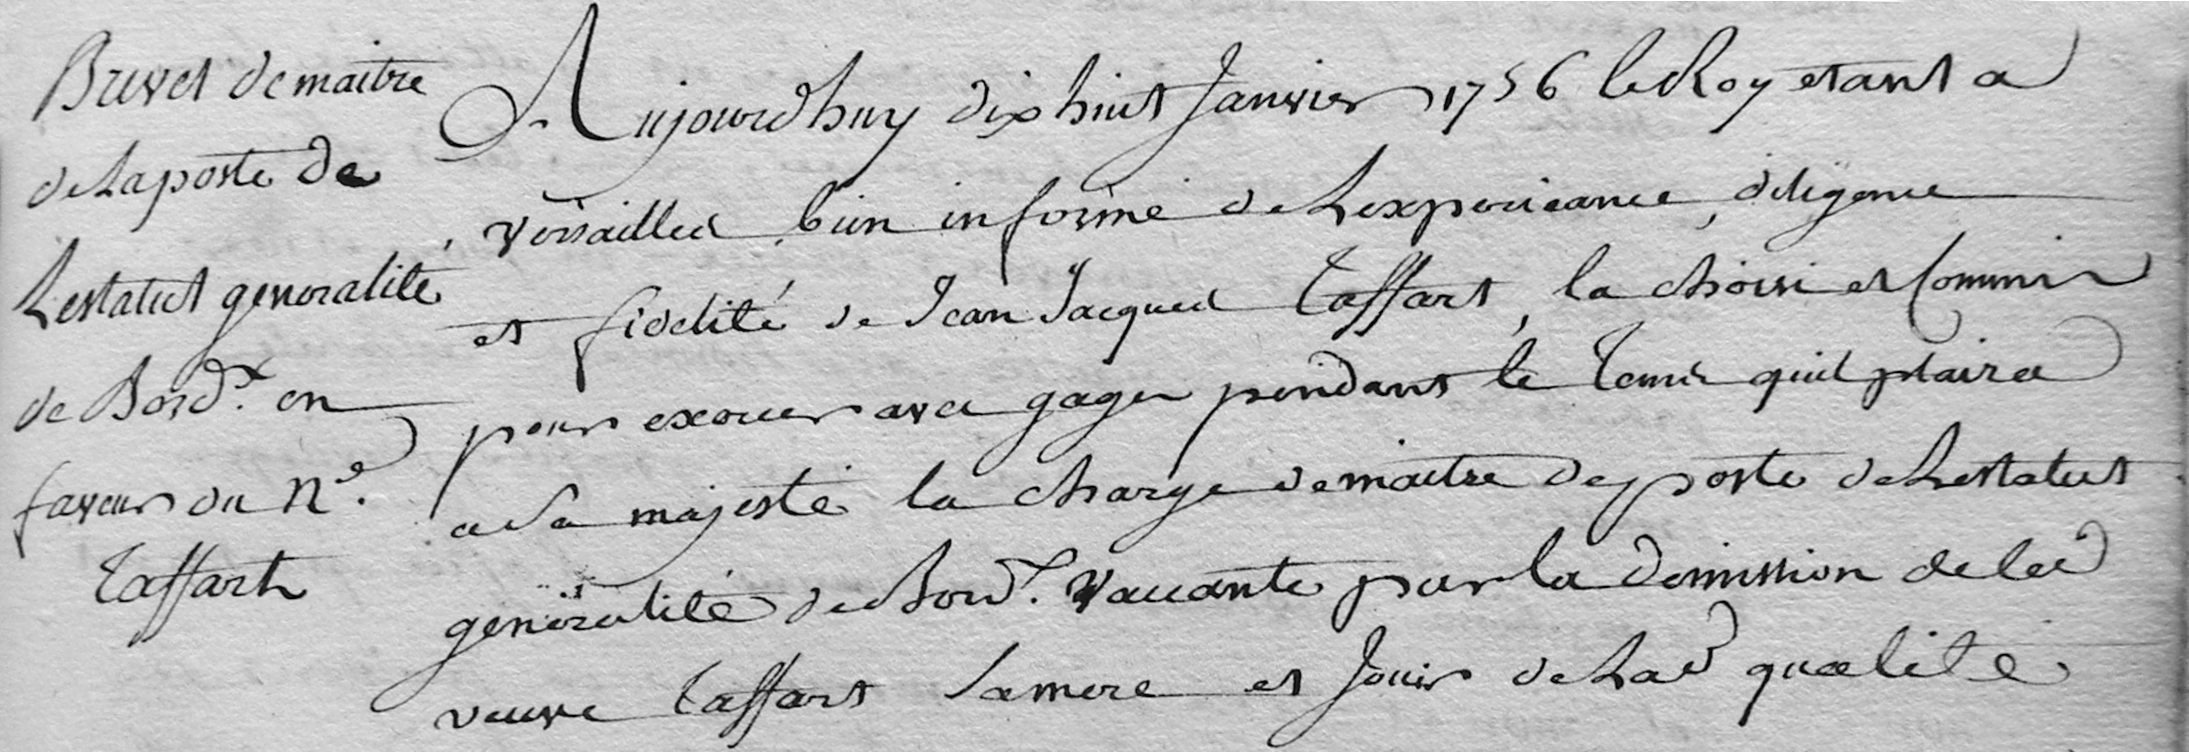 Brevet de maitre
de La poste de
Lestatut generalité
de Bord.x en
faveur du n.é
Taffart
Aujourdhuy dix huit Janvier 1756 le Roy etant a
Versailles, bien informé de Lexperieance, diligence
et fidelité de Jean Jacques Taffart, la choisi et Commis
pour exercer avec gages pendant le Tems quil plaira
a Sa majesté la charge de maitre de poste de Lestatut
generalité de Bord.x vaccante par la demission de la d
veuve Taffart Sa mere et Jouir de La d qualité